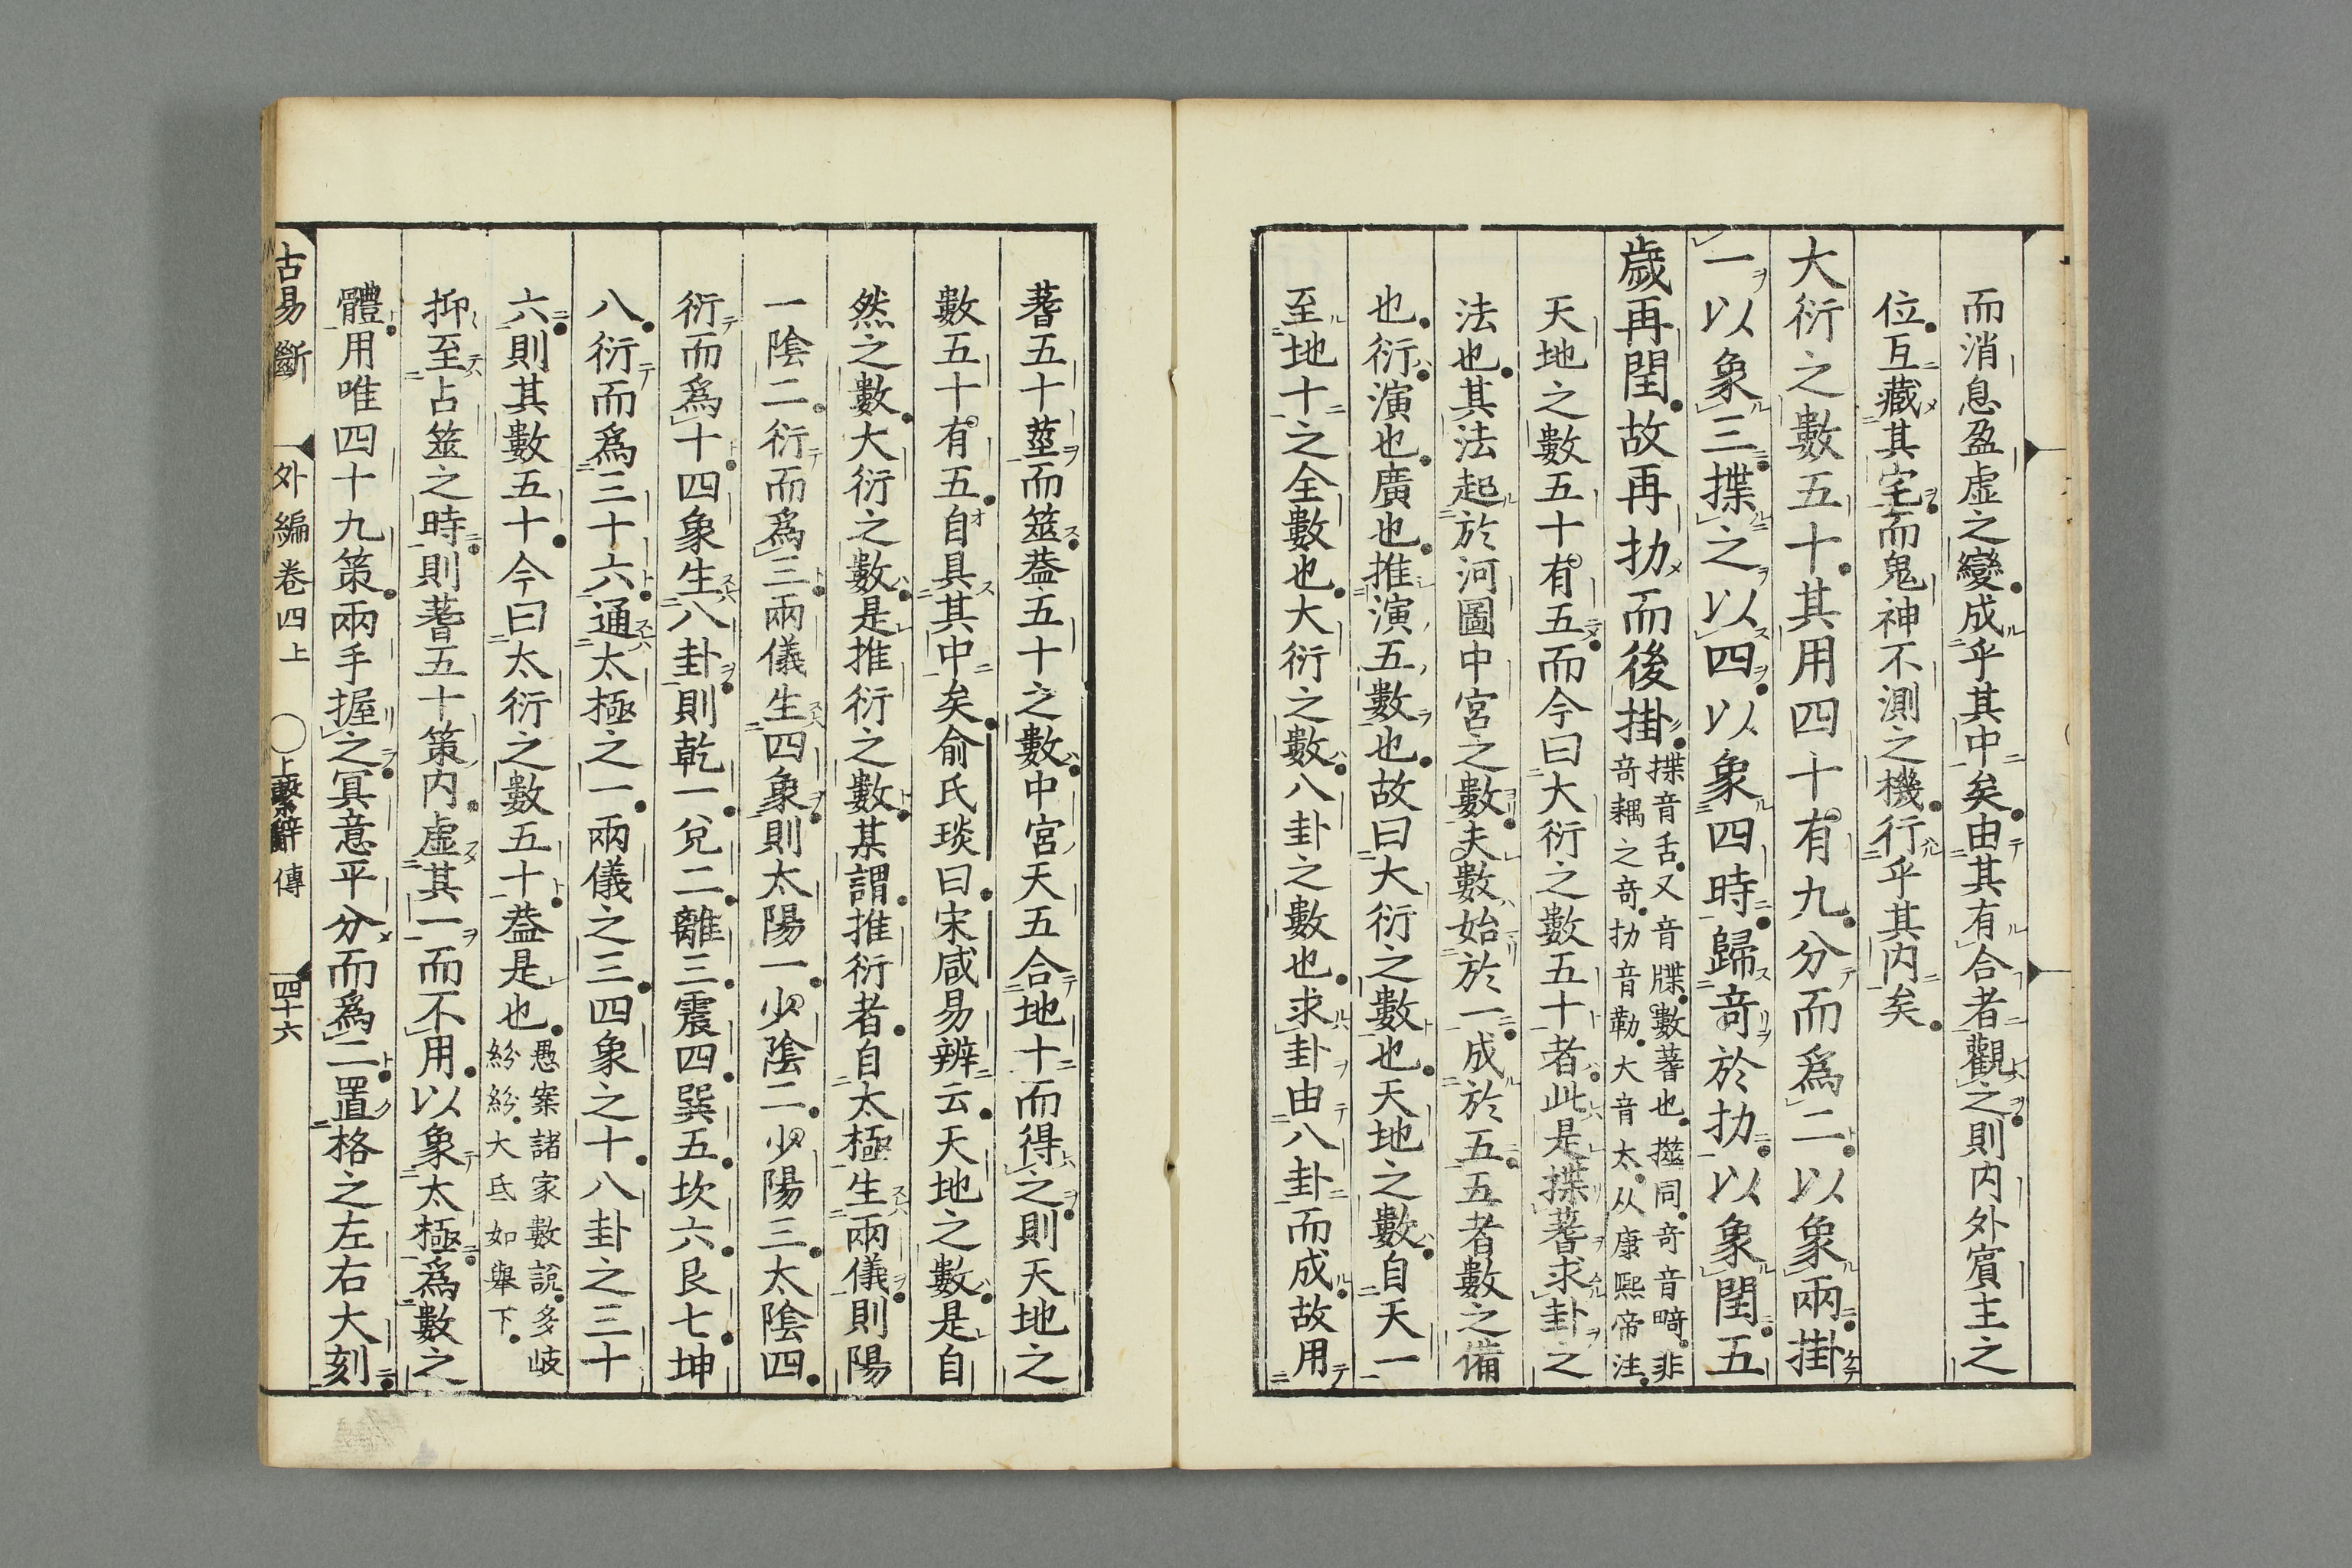 而消息盈虛之變成乎其中矣由其有合者觀之則内外賓主之
位互藏其宅而鬼神不測之機行乎其内矣
大衍之數五十其用四十有九分而爲二以象兩掛
一以象三揲之以四以象四時歸奇於扐以象閏五
歲再閏故再扐而後掛
揲音舌又音牒數蓍也㩨同奇音畸非
奇耦之奇扐音勒大音太从康熙帝注
天地之數五十有五而今曰大衍之數五十者此是揲蓍求卦之
法也其法起於河圖中宮之數夫數始於一成於五五者數之備
也衍演也廣也推演五數也故曰大衍之數也天地之數自天一
至地十之全數也大衍之數八卦之數也求卦由八卦而成故用
蓍五十莖而筮葢五十之數中宮天五合地十而得之則天地之
數五十有五自具其中矣俞氏琰曰宋咸易辨云天地之數是自
然之數大衍之數是推衍之數某謂推衍者自太極生兩儀則陽
一陰二衍而爲三兩儀生四象則太陽一少陰二少陽三太陰四
衍而爲十四象生八卦則乾一兌二離三震四巽五坎六艮七坤
八衍而爲三十六通太極之一兩儀之三四象之十八卦之三十
六則其數五十今曰太衍之數五十葢是也
愚案諸家數說多岐
紛紛大氐如舉下
抑至占筮之時則蓍五十策内虛其一而不用以象太極爲數之
體用唯四十九策兩手握之冥意平分而爲二置格之左右大刻
古易斷 外編卷四上 ○上繫辭傳 四十六